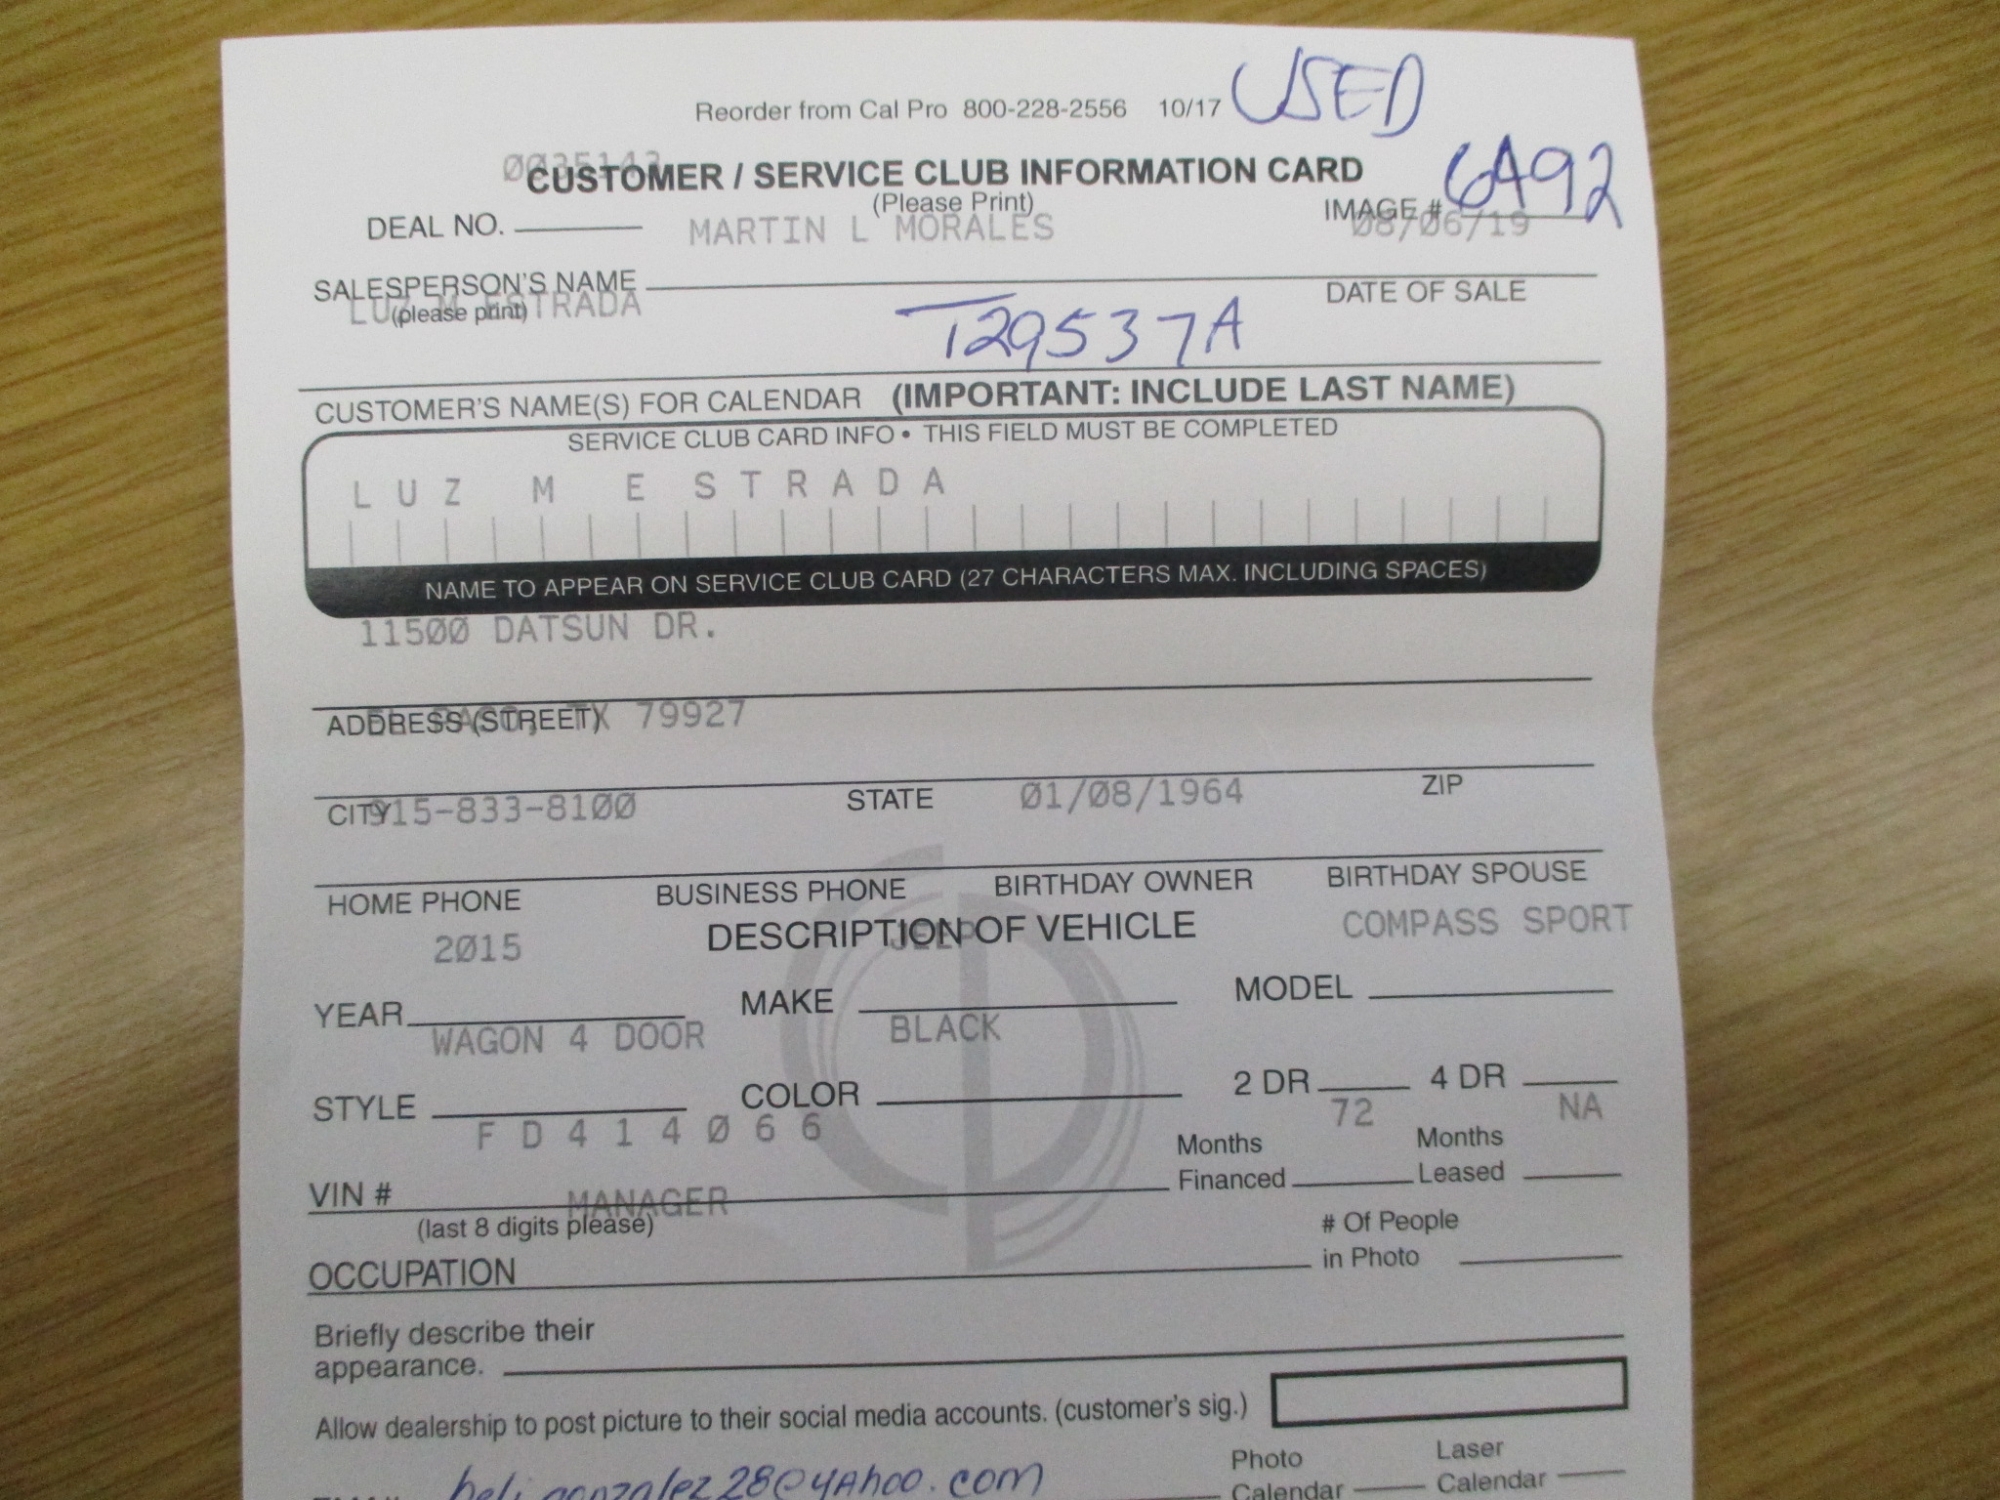 Reorder from Cal Pro 800-228-2556 10/17 USED
0035143
CUSTOMER / SERVICE CLUB INFORMATION CARD
(Please Print)
6A92
DEAL NO. MARTIN L MORALES IMAGE # 08/06/19
SALESPERSON'S NAME DATE OF SALE
(please print)
LUZ M ESTRADA
T29537A
CUSTOMER'S NAME(S) FOR CALENDAR (IMPORTANT: INCLUDE LAST NAME)
SERVICE CLUB CARD INFO • THIS FIELD MUST BE COMPLETED
LUZ M ESTRADA
NAME TO APPEAR ON SERVICE CLUB CARD (27 CHARACTERS MAX. INCLUDING SPACES)
11500 DATSUN DR.
ADDRESS (STREET)
TX 79927
CITY STATE ZIP
915-833-8100 01/08/1964
HOME PHONE BUSINESS PHONE BIRTHDAY OWNER BIRTHDAY SPOUSE
DESCRIPTION OF VEHICLE
2015 JEEP COMPASS SPORT
YEAR MAKE MODEL
WAGON 4 DOOR BLACK
STYLE COLOR 2 DR 4 DR
FD414066 72 NA
VIN # Months Financed Months Leased
(last 8 digits please)
MANAGER
OCCUPATION # Of People in Photo
Briefly describe their
appearance.
Allow dealership to post picture to their social media accounts. (customer's sig.)
beli.gonzalez28@yahoo.com Photo Calendar Laser Calendar